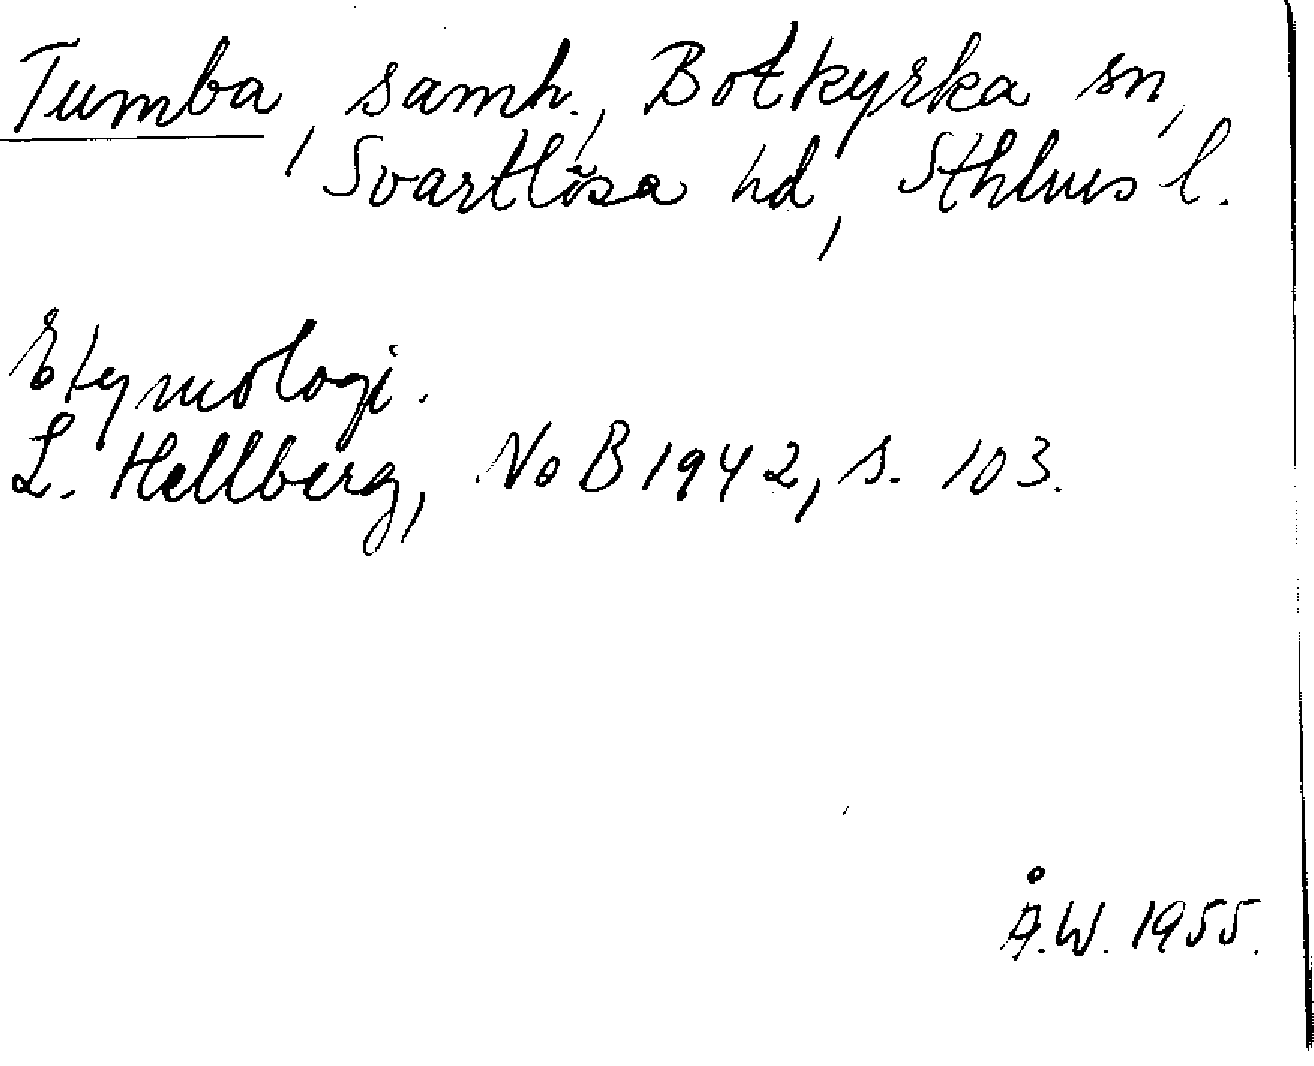 Tumba, samh., Botkyrka sn,
Svartlösa hd, Sthlms l.
Etymologi.
L. Hellberg, NoB 1942, s. 103.
Å.W. 1955.